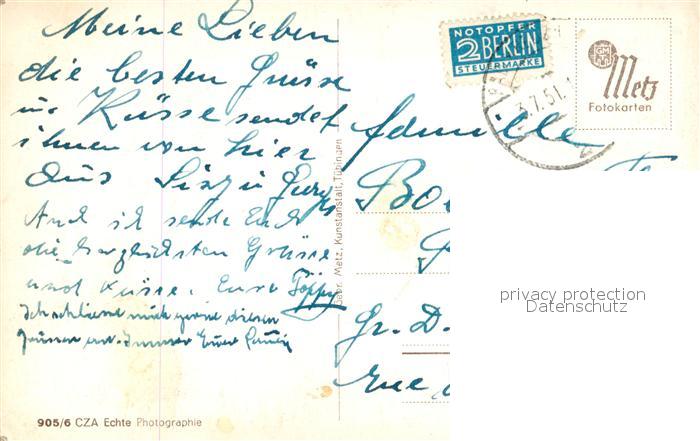 Meine Lieben
die besten Grüsse
u. Küsse sendet
ihnen von hier
aus
Auch ich sende Euch
die herzlichsten Grüsse
und Küsse. Eure
Ich schliesse mich gerne diesen
Grüssen an. Immer Euer
905/6 CZA Echte Photographie
Gebr. Metz, Kunstanstalt, Tübingen
NOTOPFER
2 BERLIN
STEUERMARKE
3.7.51.
GMT
Metz
Fotokarten
Familie
Bo
Gr. D.
Rue
privacy protection
Datenschutz